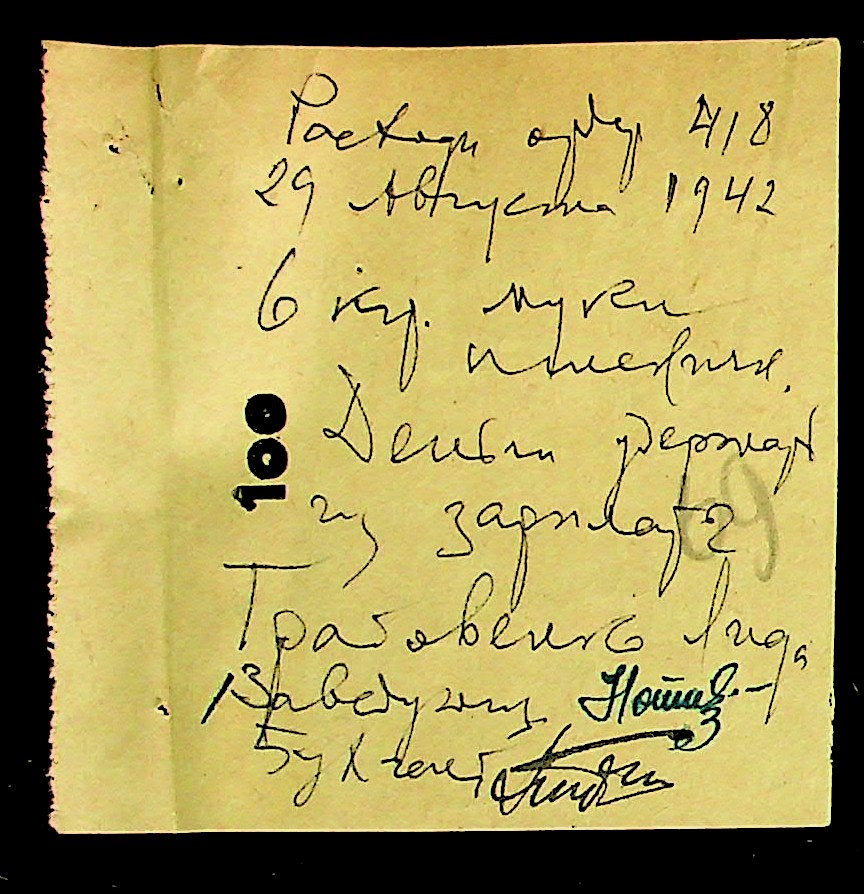 Расход ордер 418
29 Августа 1942
6 кгр. муки
пшеничн.
Деньги удержать
из зарплаты
Грабовенко Лида
Заведующ
Бухгалт
100
69